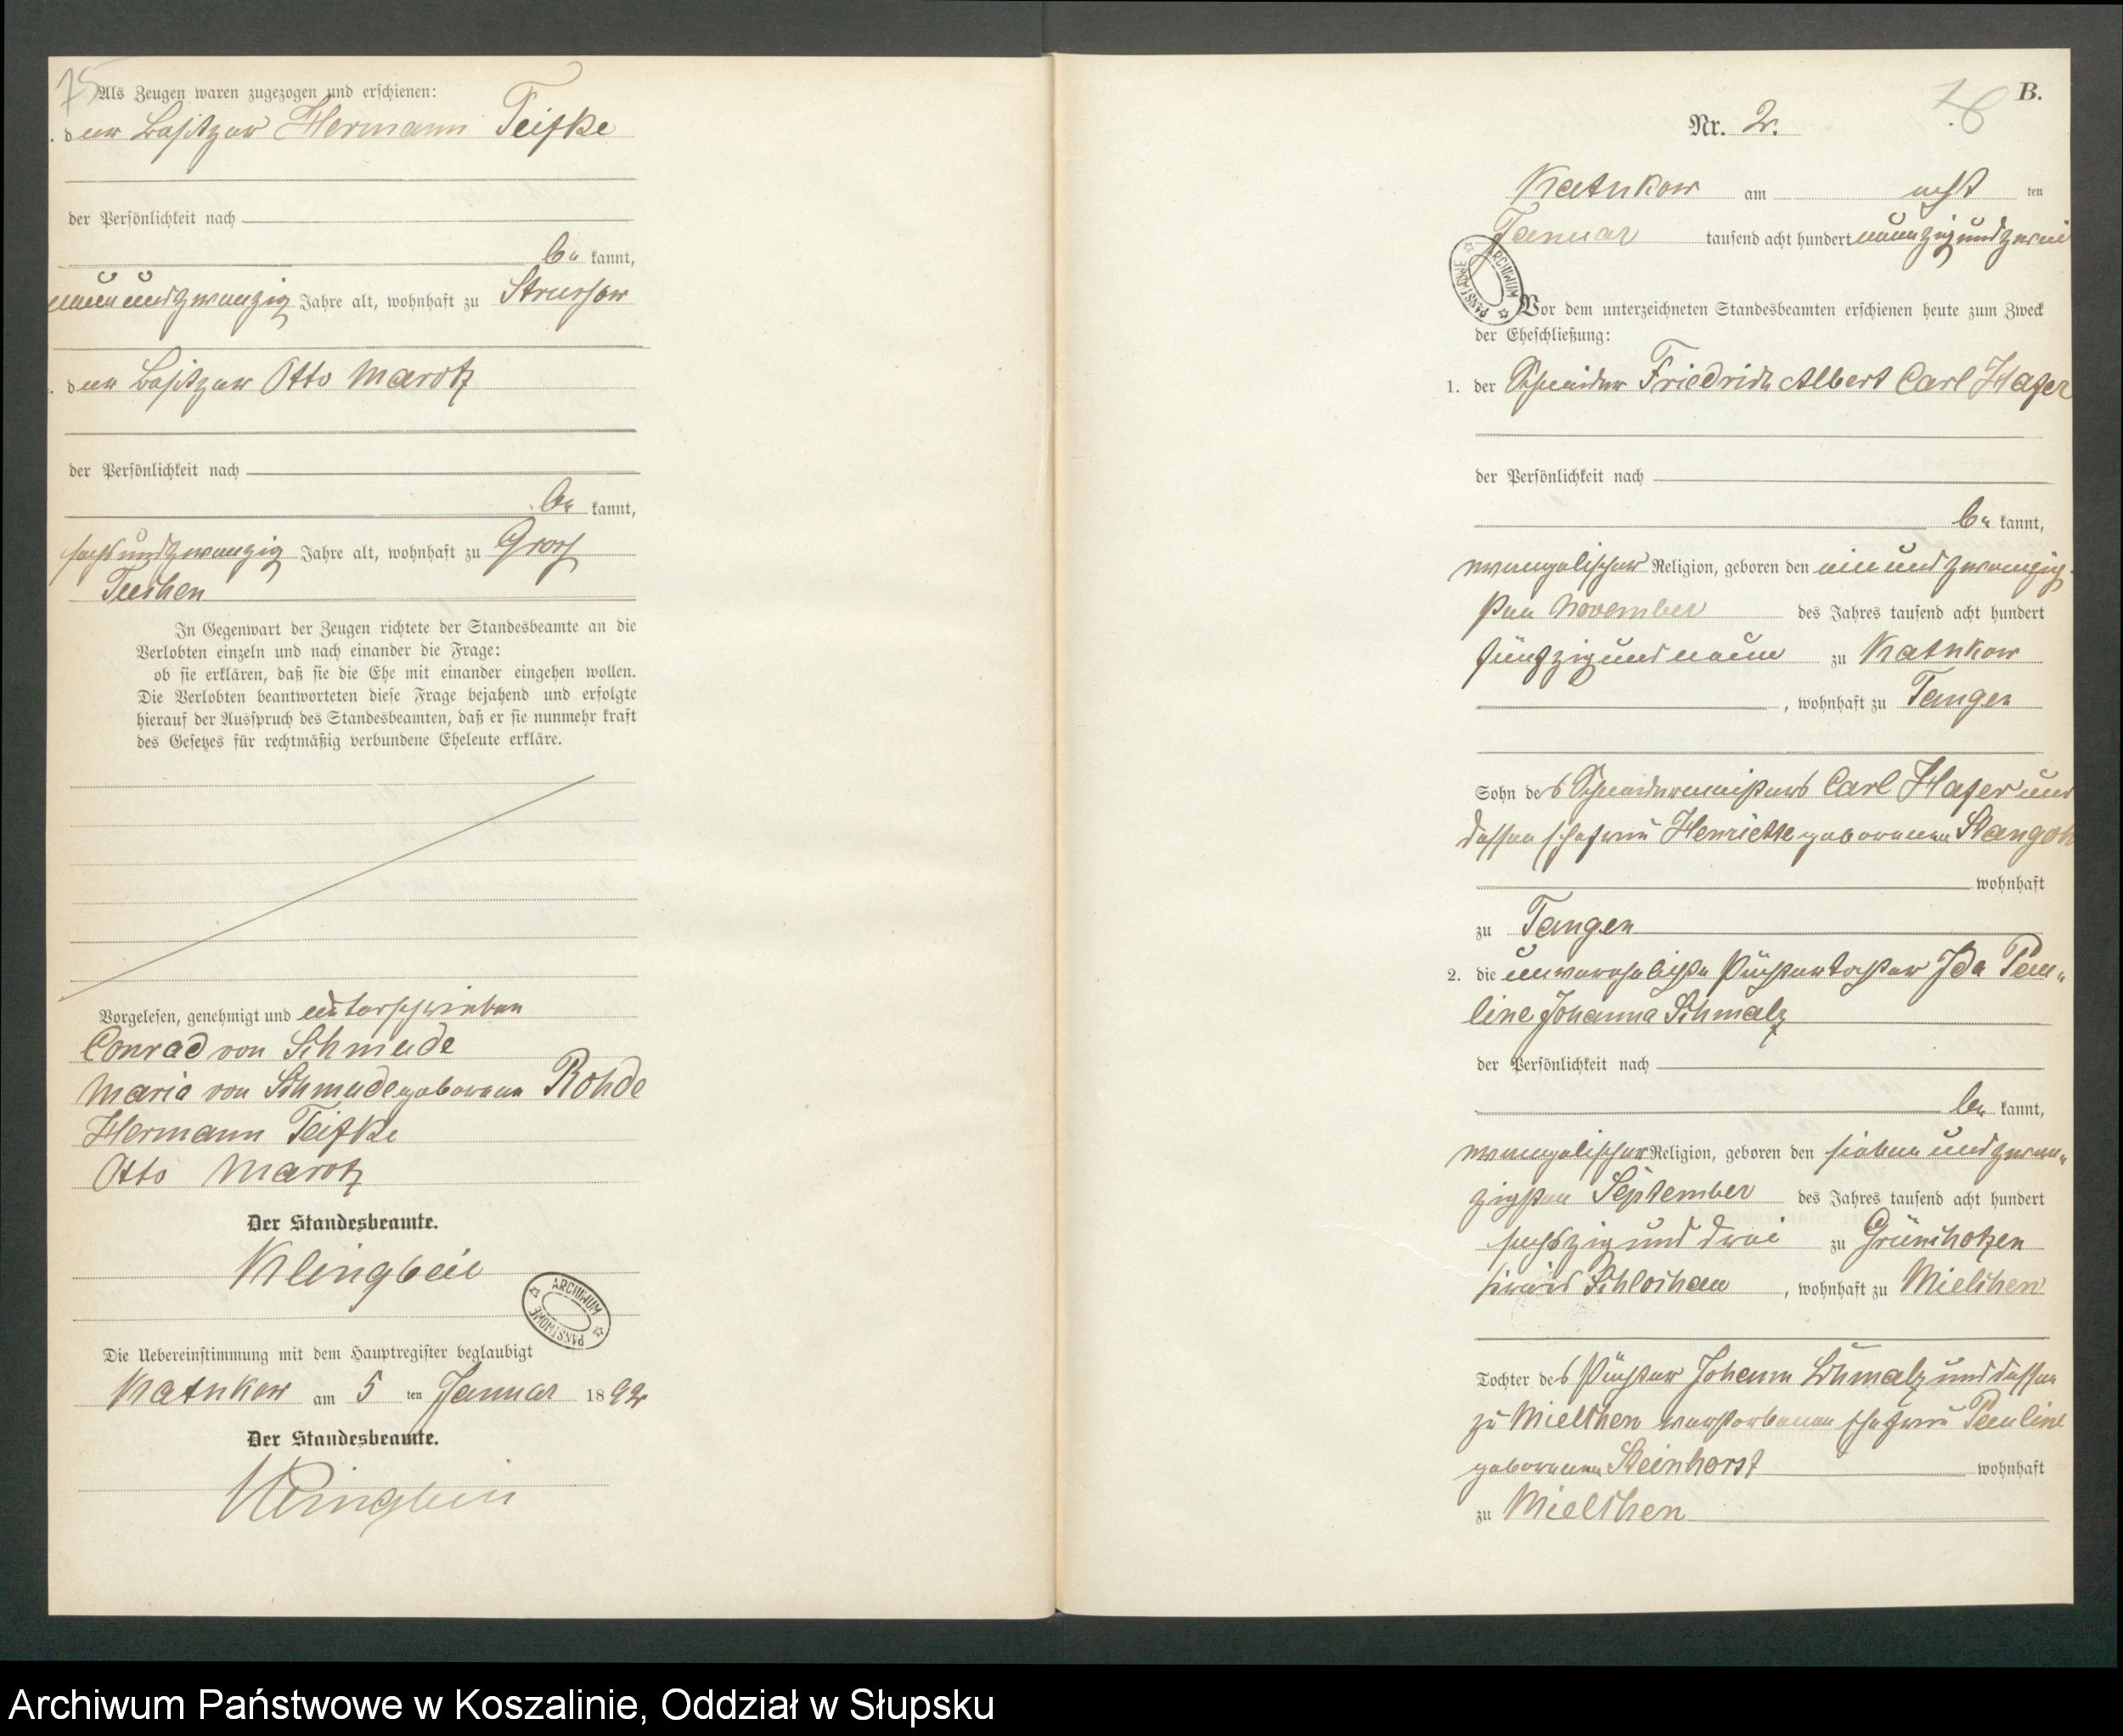 75
Als Zeugen waren zugezogen und erschienen:
der Besitzer Hermann Teifke
der Persönlichkeit nach
be kannt,
neunundzwanzig Jahre alt, wohnhaft zu Strussow
der Besitzer Otto Marotz
der Persönlichkeit nach
be kannt,
sechsundzwanzig Jahre alt, wohnhaft zu Groß
Tuchen
In Gegenwart der Zeugen richtete der Standesbeamte an die
Verlobten einzeln und nach einander die Frage:
ob sie erklären, daß sie die Ehe mit einander eingehen wollen.
Die Verlobten beantworteten diese Frage bejahend und erfolgte
hierauf der Ausspruch des Standesbeamten, daß er sie nunmehr kraft
des Gesetzes für rechtmäßig verbundene Eheleute erkläre.
Vorgelesen, genehmigt und unterschrieben
Conrad von Schmude
Maria von Schmude geborene Rohde
Hermann Teifke
Otto Marotz
Der Standesbeamte.
Klingbeil
ARCHIWUM PAŃSTWOWE
Die Uebereinstimmung mit dem Hauptregister beglaubigt
Kathkow am 5 ten Januar 1892
Der Standesbeamte.
Klingbeil
B.
76
Nr. 2.
Kathkow am acht ten
Januar tausend acht hundert neunzig und zwei
ARCHIWUM PAŃSTWOWE
Vor dem unterzeichneten Standesbeamten erschienen heute zum Zweck
der Eheschließung:
1. der Schneider Friedrich Albert Carl Hafer
der Persönlichkeit nach
be kannt,
evangelischer Religion, geboren den ein und zwanzig-
sten November des Jahres tausend acht hundert
fünfzig und neun zu Kathkow
, wohnhaft zu Tangen
Sohn des Schneidermeisters Carl Hafer und
dessen Ehefrau Henriette geborenen
wohnhaft
zu Tangen
2. die unverehelichte Ida Pau-
line Johanna Schmalz
der Persönlichkeit nach
be kannt,
evangelischer Religion, geboren den sieben und zwan-
zigsten September des Jahres tausend acht hundert
sechszig und drei zu Grünchotzen
Kreis Schlochau, wohnhaft zu Mielchen
Tochter des Johann Schmalz und dessen
zu Mielchen verstorbenen Ehefrau Pauline
geborenen Steinhorst wohnhaft
zu Mielchen
Archiwum Państwowe w Koszalinie, Oddział w Słupsku